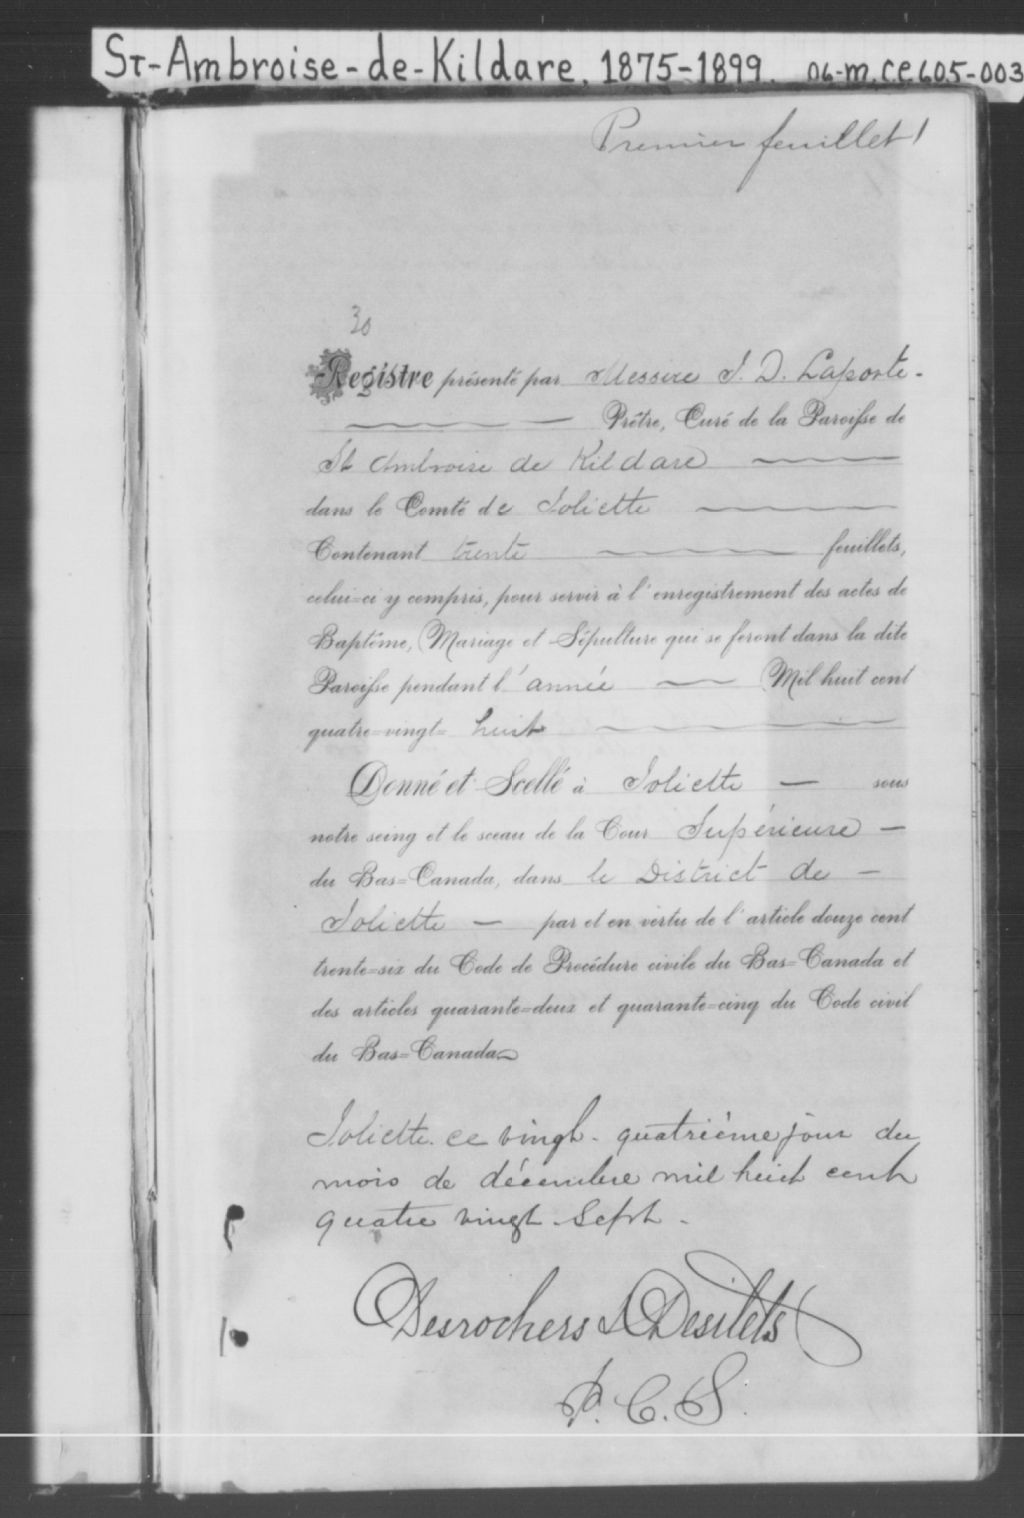 St-Ambroise-de-Kildare, 1875-1899. 06-M.CE605-003
Premier feuillet 1
30
Registre présenté par Messire J. D. Laporte -
Prêtre, Curé de la Paroisse de
St Ambroise de Kildare
dans le Comté de Joliette
Contenant trente feuillets,
celui=ci y compris, pour servir à l'enregistrement des actes de
Baptême, Mariage et Sépulture qui se feront dans la dite
Paroisse pendant l'année Mil huit cent
quatre=vingt= huit
Donné et Scellé à Joliette — sous
notre seing et le sceau de la Cour Supérieure —
du Bas=Canada, dans le District de —
Joliette — par et en vertu de l'article douze cent
trente=six du Code de Procédure civile du Bas=Canada et
des articles quarante=deux et quarante=cinq du Code civil
du Bas=Canada
Joliette ce vingt-quatrième jour du
mois de décembre mil huit cent
quatre vingt-Sept -
Desrochers & Desilets
P. C. S.